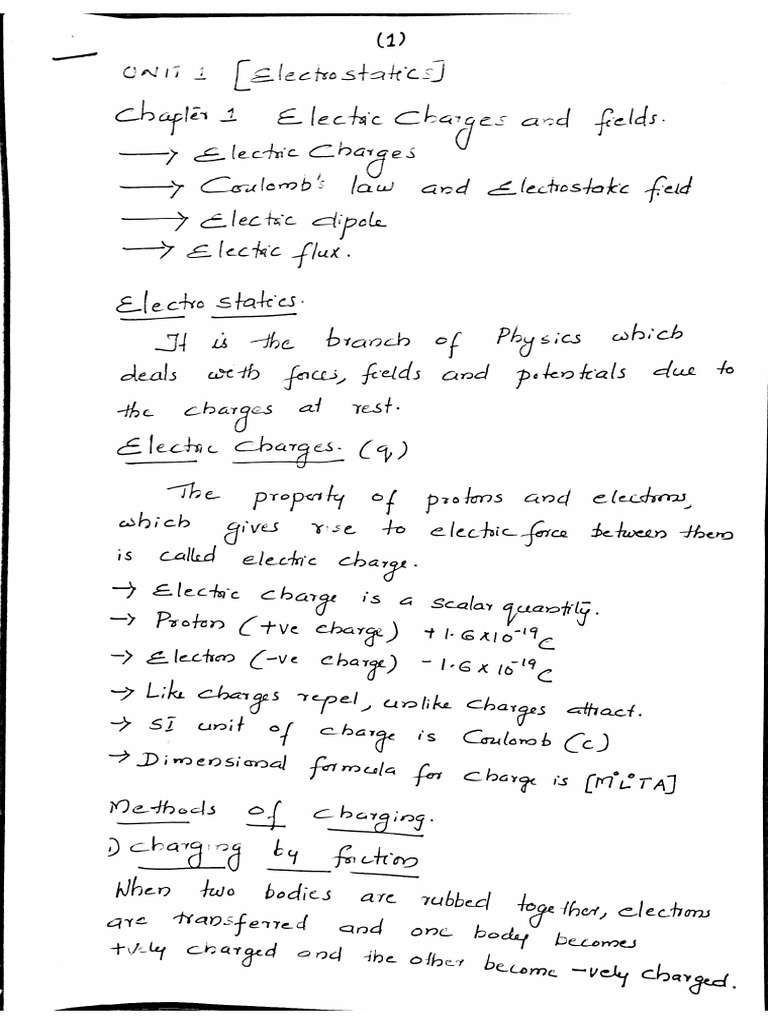 (1)
UNIT 1 [Electrostatics]
Chapter 1 Electric Charges and fields.
→ Electric Charges
→ Coulomb's law and Electrostatic field
→ Electric dipole
→ Electric flux.
Electro statics.
It is the branch of Physics which
deals with forces, fields and potentials due to
the charges at rest.
Electric Charges. (q)
The property of protons and electrons,
which gives rise to electric force between them
is called electric charge.
→ Electric charge is a scalar quantity.
→ Proton (+ve charge) +1.6×10⁻¹⁹C
→ Electron (-ve charge) -1.6×10⁻¹⁹C
→ Like charges repel, unlike charges attract.
→ SI unit of charge is Coulomb (C)
→ Dimensional formula for charge is [M⁰L⁰TA]
Methods of charging.
1) charging by friction
When two bodies are rubbed together, electrons
are transferred and one body becomes
+vely charged and the other become -vely charged.